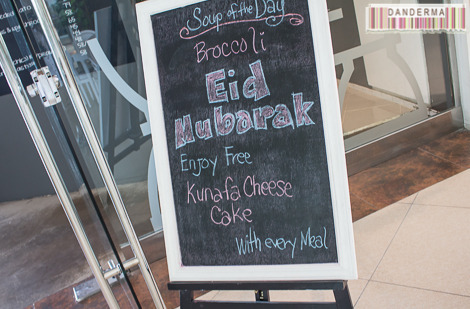 DANDERMA
Soup of the Day
Broccoli
Eid
Mubarak
Enjoy Free
Kunafa Cheese
Cake
With every Meal